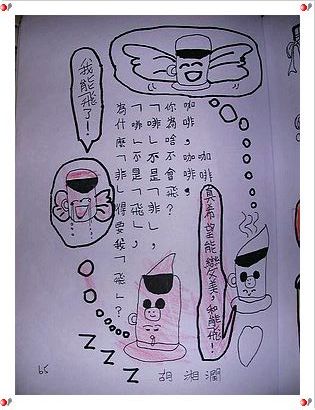 咖啡，咖啡，
你為啥不會飛？
「啡」不是「非」，
「啡」不是「飛」，
為什麼「非」得要我「飛」？
真希望能變美，和能飛！
我能飛了！
Z Z Z
胡湘瀾
65